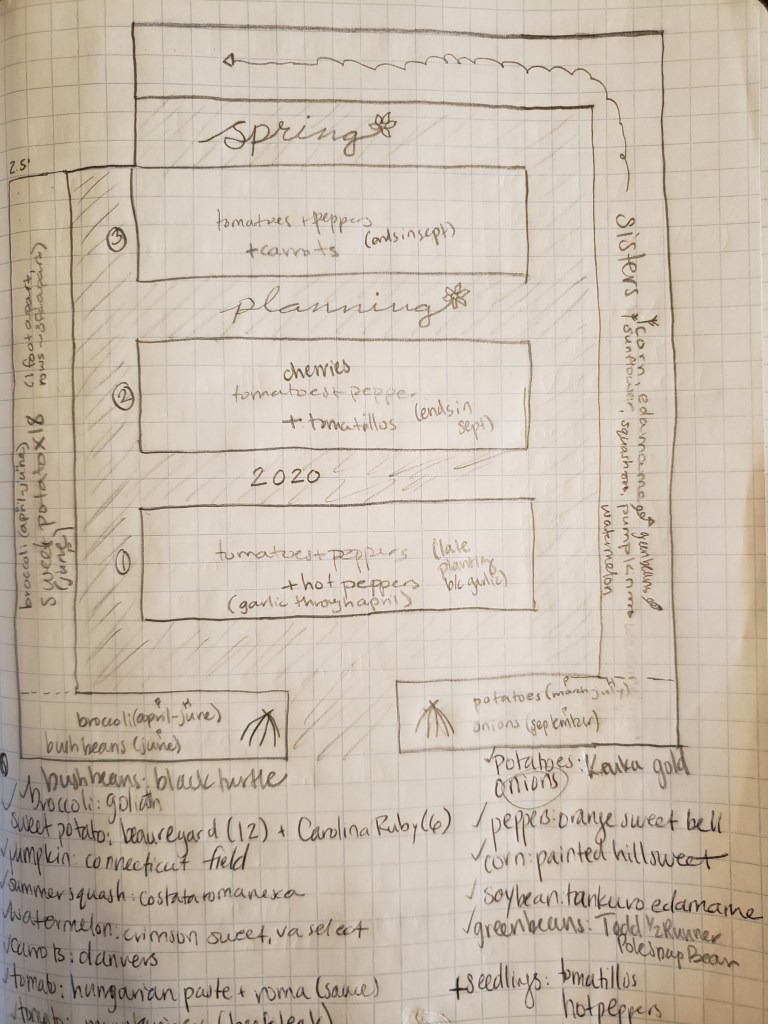 spring
2.5'
③
tomatoes + peppers
+ carrots (ends in sept)
planning
②
cherries
tomatoes + pepper
+ tomatillos (ends in
sept)
2020
①
tomatoes + peppers (late
planting
+ hot peppers b/c garlic)
(garlic through april)
broccoli (april-june)
sweet potato x 18 (1 foot apart,
rows
(june)
sisters
corn, edamame, greenbeans,
sunflower, squash, pumpkin
watermelon
broccoli (april-june)
bush beans (june)
potatoes (march-july)
onions (september)
bush beans: black turtle
✓ broccoli: goliath
sweet potato: beauregard (12) + Carolina Ruby (6)
✓ pumpkin: connecticut field
✓ summer squash: costata romanexa
✓ watermelon: crimson sweet, va select
✓ carrots: danvers
✓ tomato: hungarian paste + roma (sauce)
✓ potatoes: Keuka gold
onions
✓ peppers: orange sweet bell
✓ corn: painted hill sweet
✓ soybean: tankuro edamame
✓ greenbeans: Todd 1/2 Runner
Pole snap Bean
+ seedlings: tomatillos
hot peppers